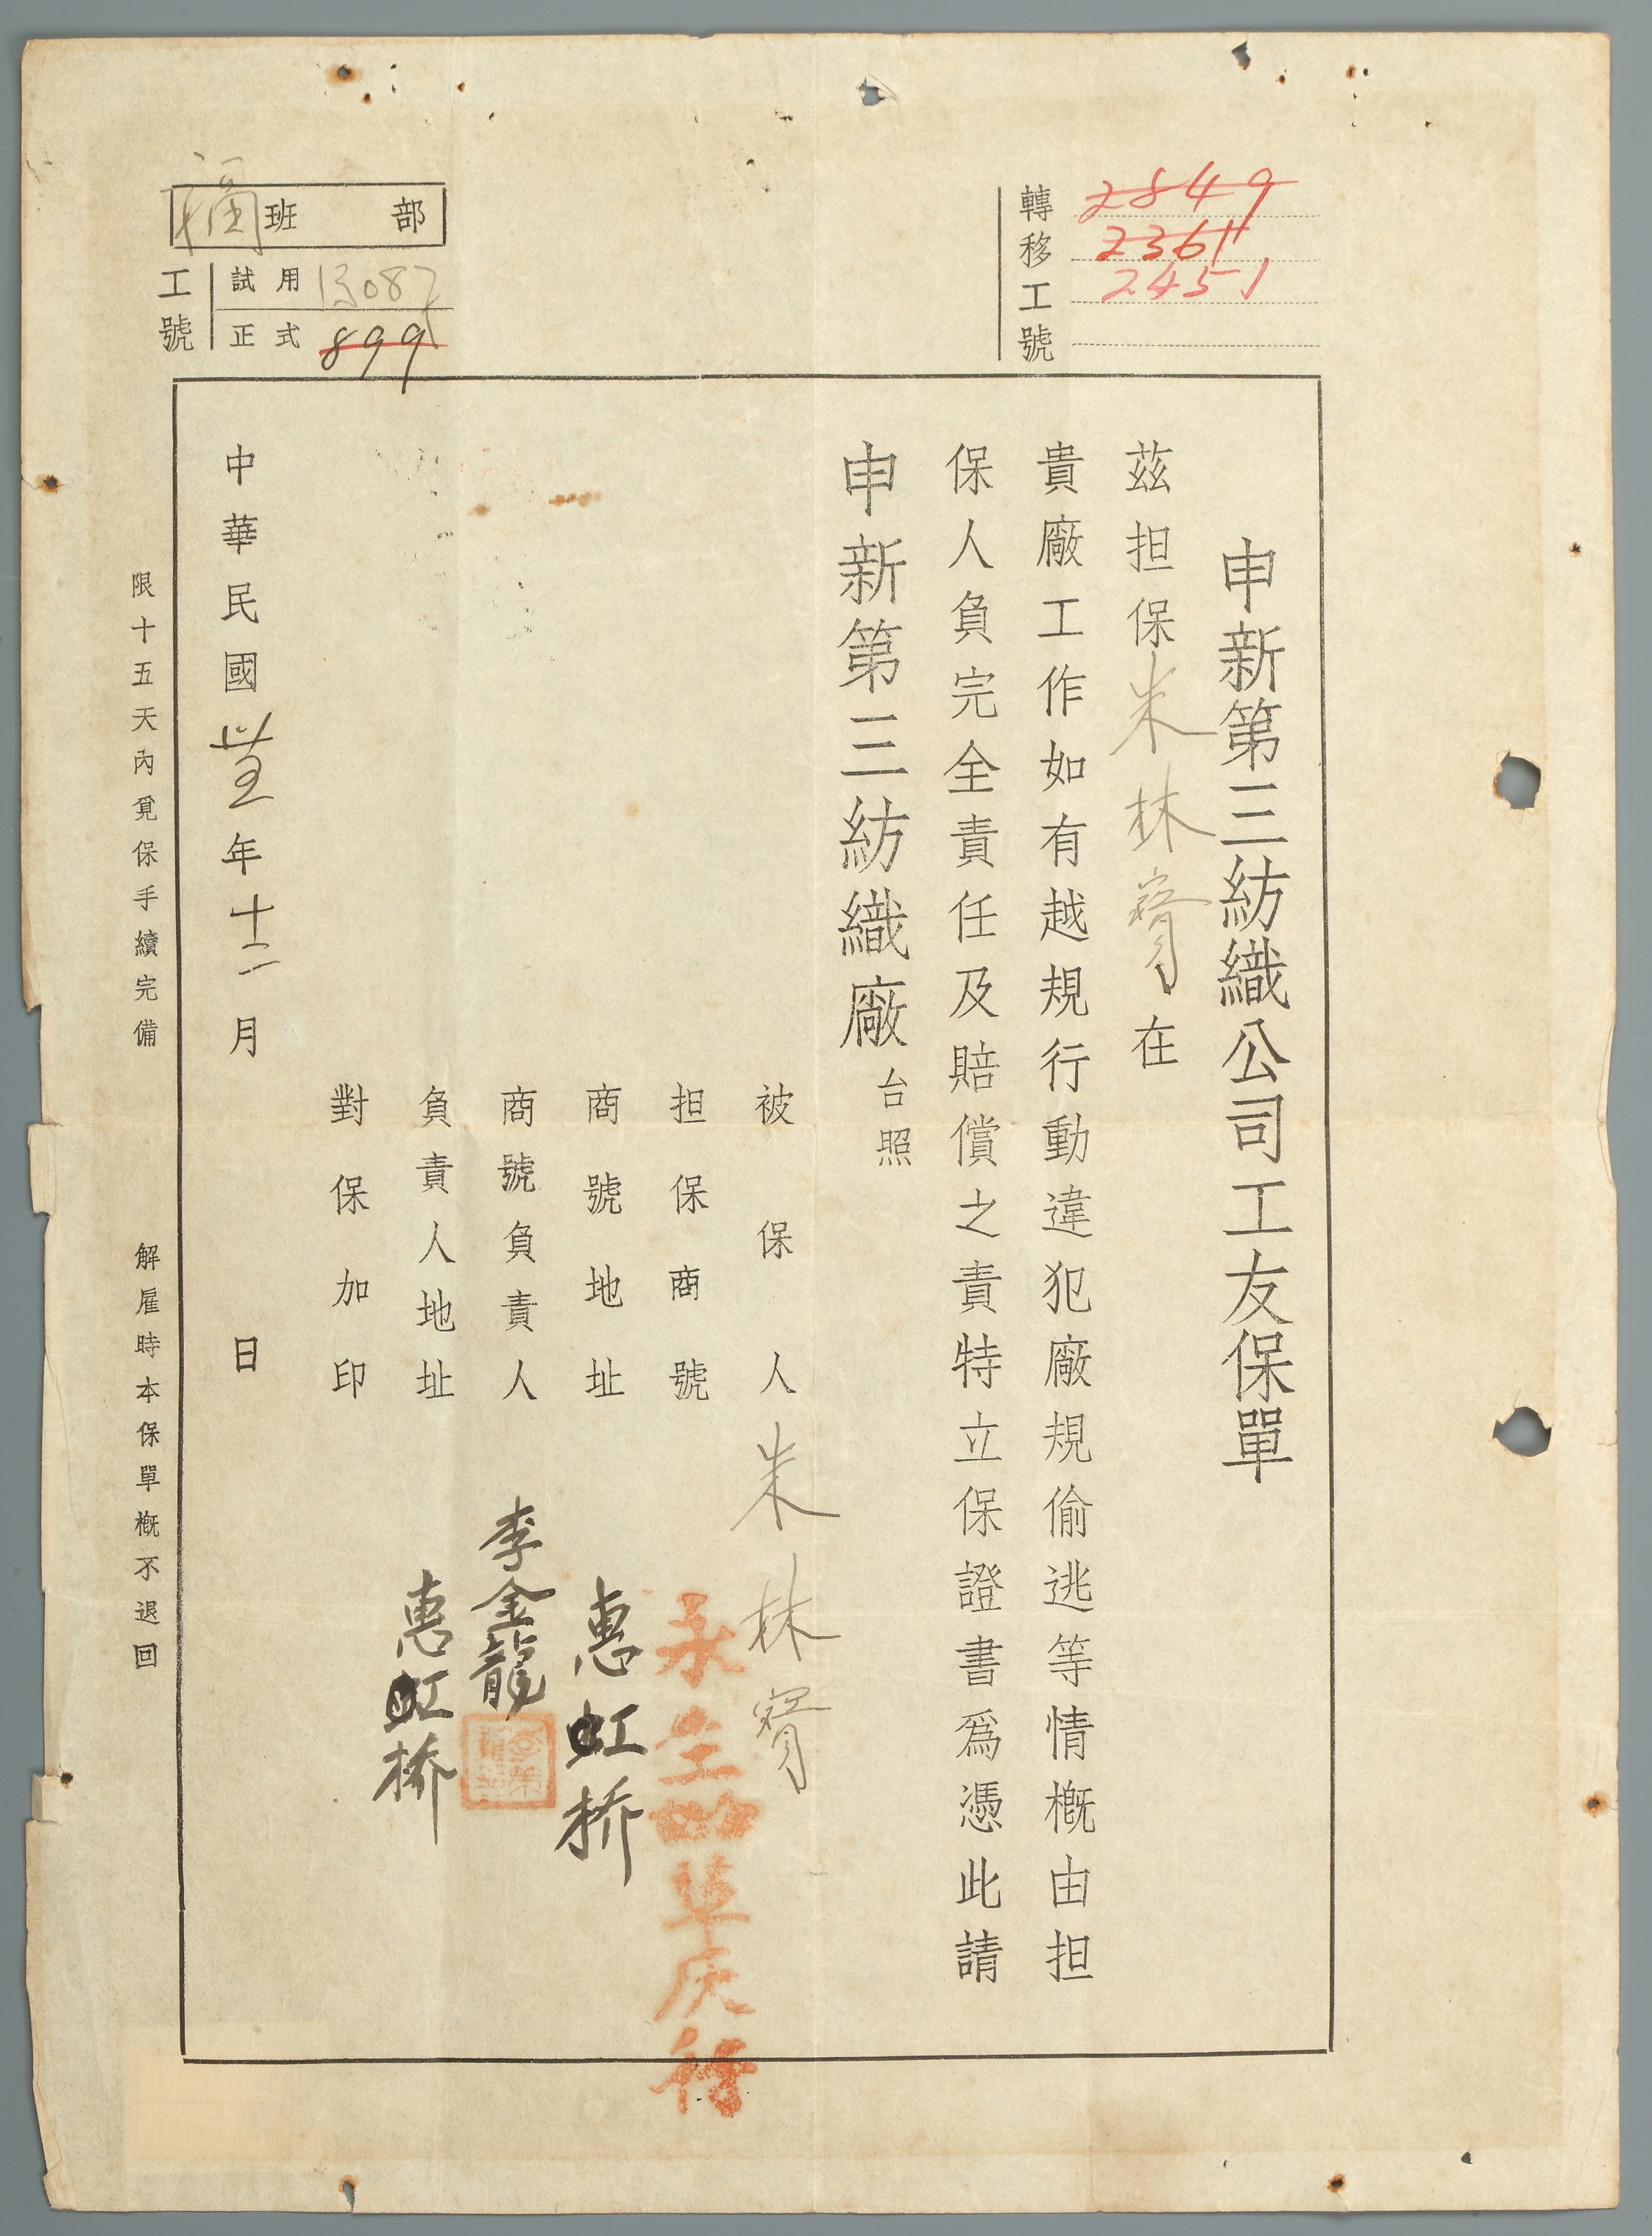 轉移工號
2849
2361
2451
部 班
工號
試用 13087
正式 899
申新第三紡織公司工友保單
茲担保朱林寶在
貴廠工作如有越規行動違犯廠規偷逃等情概由担
保人負完全責任及賠償之責特立保證書為憑此請
申新第三紡織廠台照
被保人 朱林寶
担保商號 永全 草庆行
商號地址 惠虹桥
商號負責人 李金龍
負責人地址 惠虹桥
對保加印
中華民國 年十二月 日
限十五天內覓保手續完備 解雇時本保單概不退回